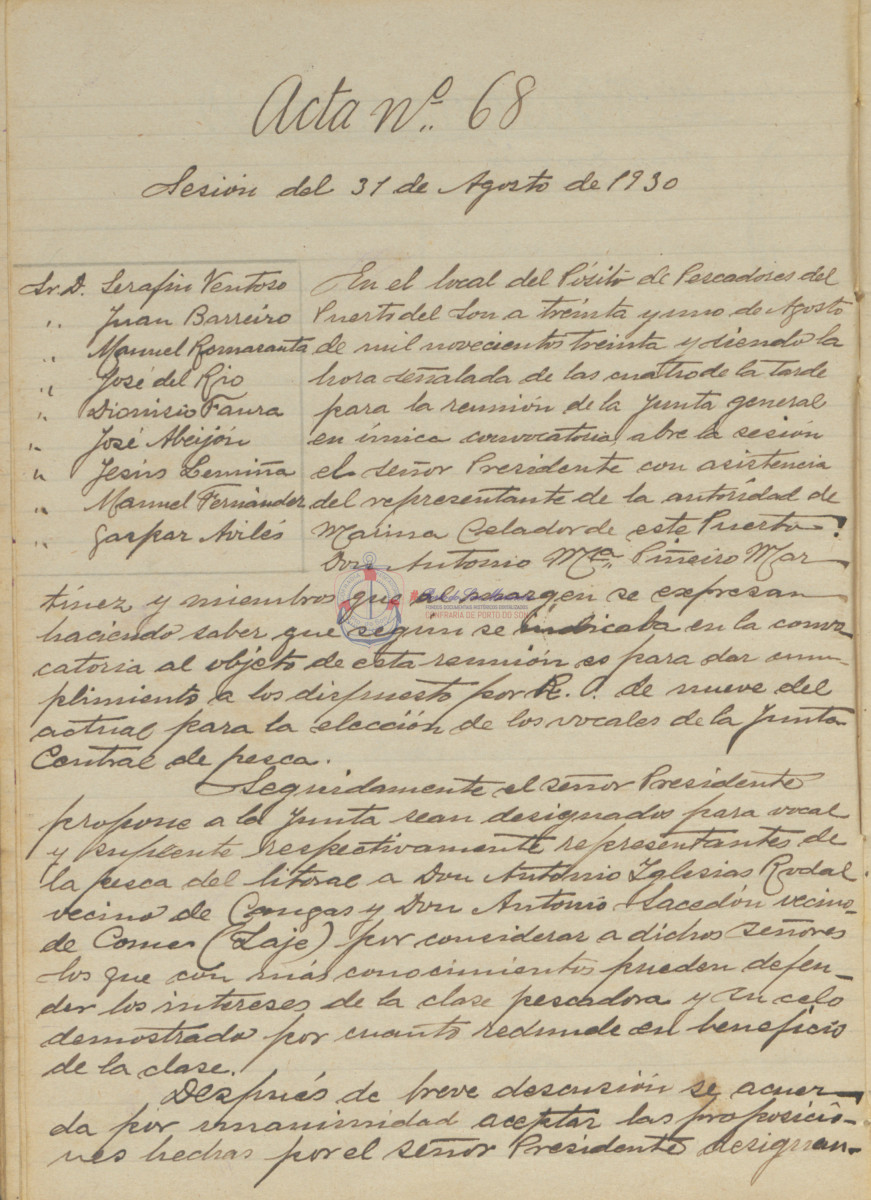 Acta nº. 68
Sesión del 31 de Agosto de 1930
Sr. D. Serafin Ventoso
" Juan Barreiro
" Manuel Romaranta
" José del Rio
" Dionisio Faura
" José Abeijón
" Jesús Lemiña
" Manuel Fernández
" Gaspar Avilés
En el local del Pósito de Pescadores del
Puerto del Son a treinta y uno de Agosto
de mil novecientos treinta y siendo la
hora señalada de las cuatro de la tarde
para la reunión de la Junta general
en única convocatoria, abre la sesión
el señor Presidente con asistencia
del representante de la autoridad de
Marina Celador de este Puerto
Don Antonio Mª. Piñeiro Mar
tinez y miembros que al margen se expresan
haciendo saber que segun se indicaba en la convo
catoria al objeto de esta reunión es para dar cum-
plimiento a los dispuesto por R. O. de nueve del
actual para la elección de los vocales de la Junta
Central de pesca.
Seguidamente el señor Presidente
propone a la Junta sean designados para vocal
y suplente respectivamente representantes de
la pesca del litoral a Don Antonio Iglesias Rodal
vecino de Cangas y Don Antonio Sacedón vecino
de Corme (Laje) por considerar a dichos señores
los que con más conocimientos pueden defen-
der los intereses de la clase pescadora y su celo
demostrado por cuanto redunde en beneficio
de la clase.
Después de breve descusión se acuer-
da por unanimidad aceptar las proposicio-
nes hechas por el señor Presidente designan-
CONFRARIA DE PORTO DO SON